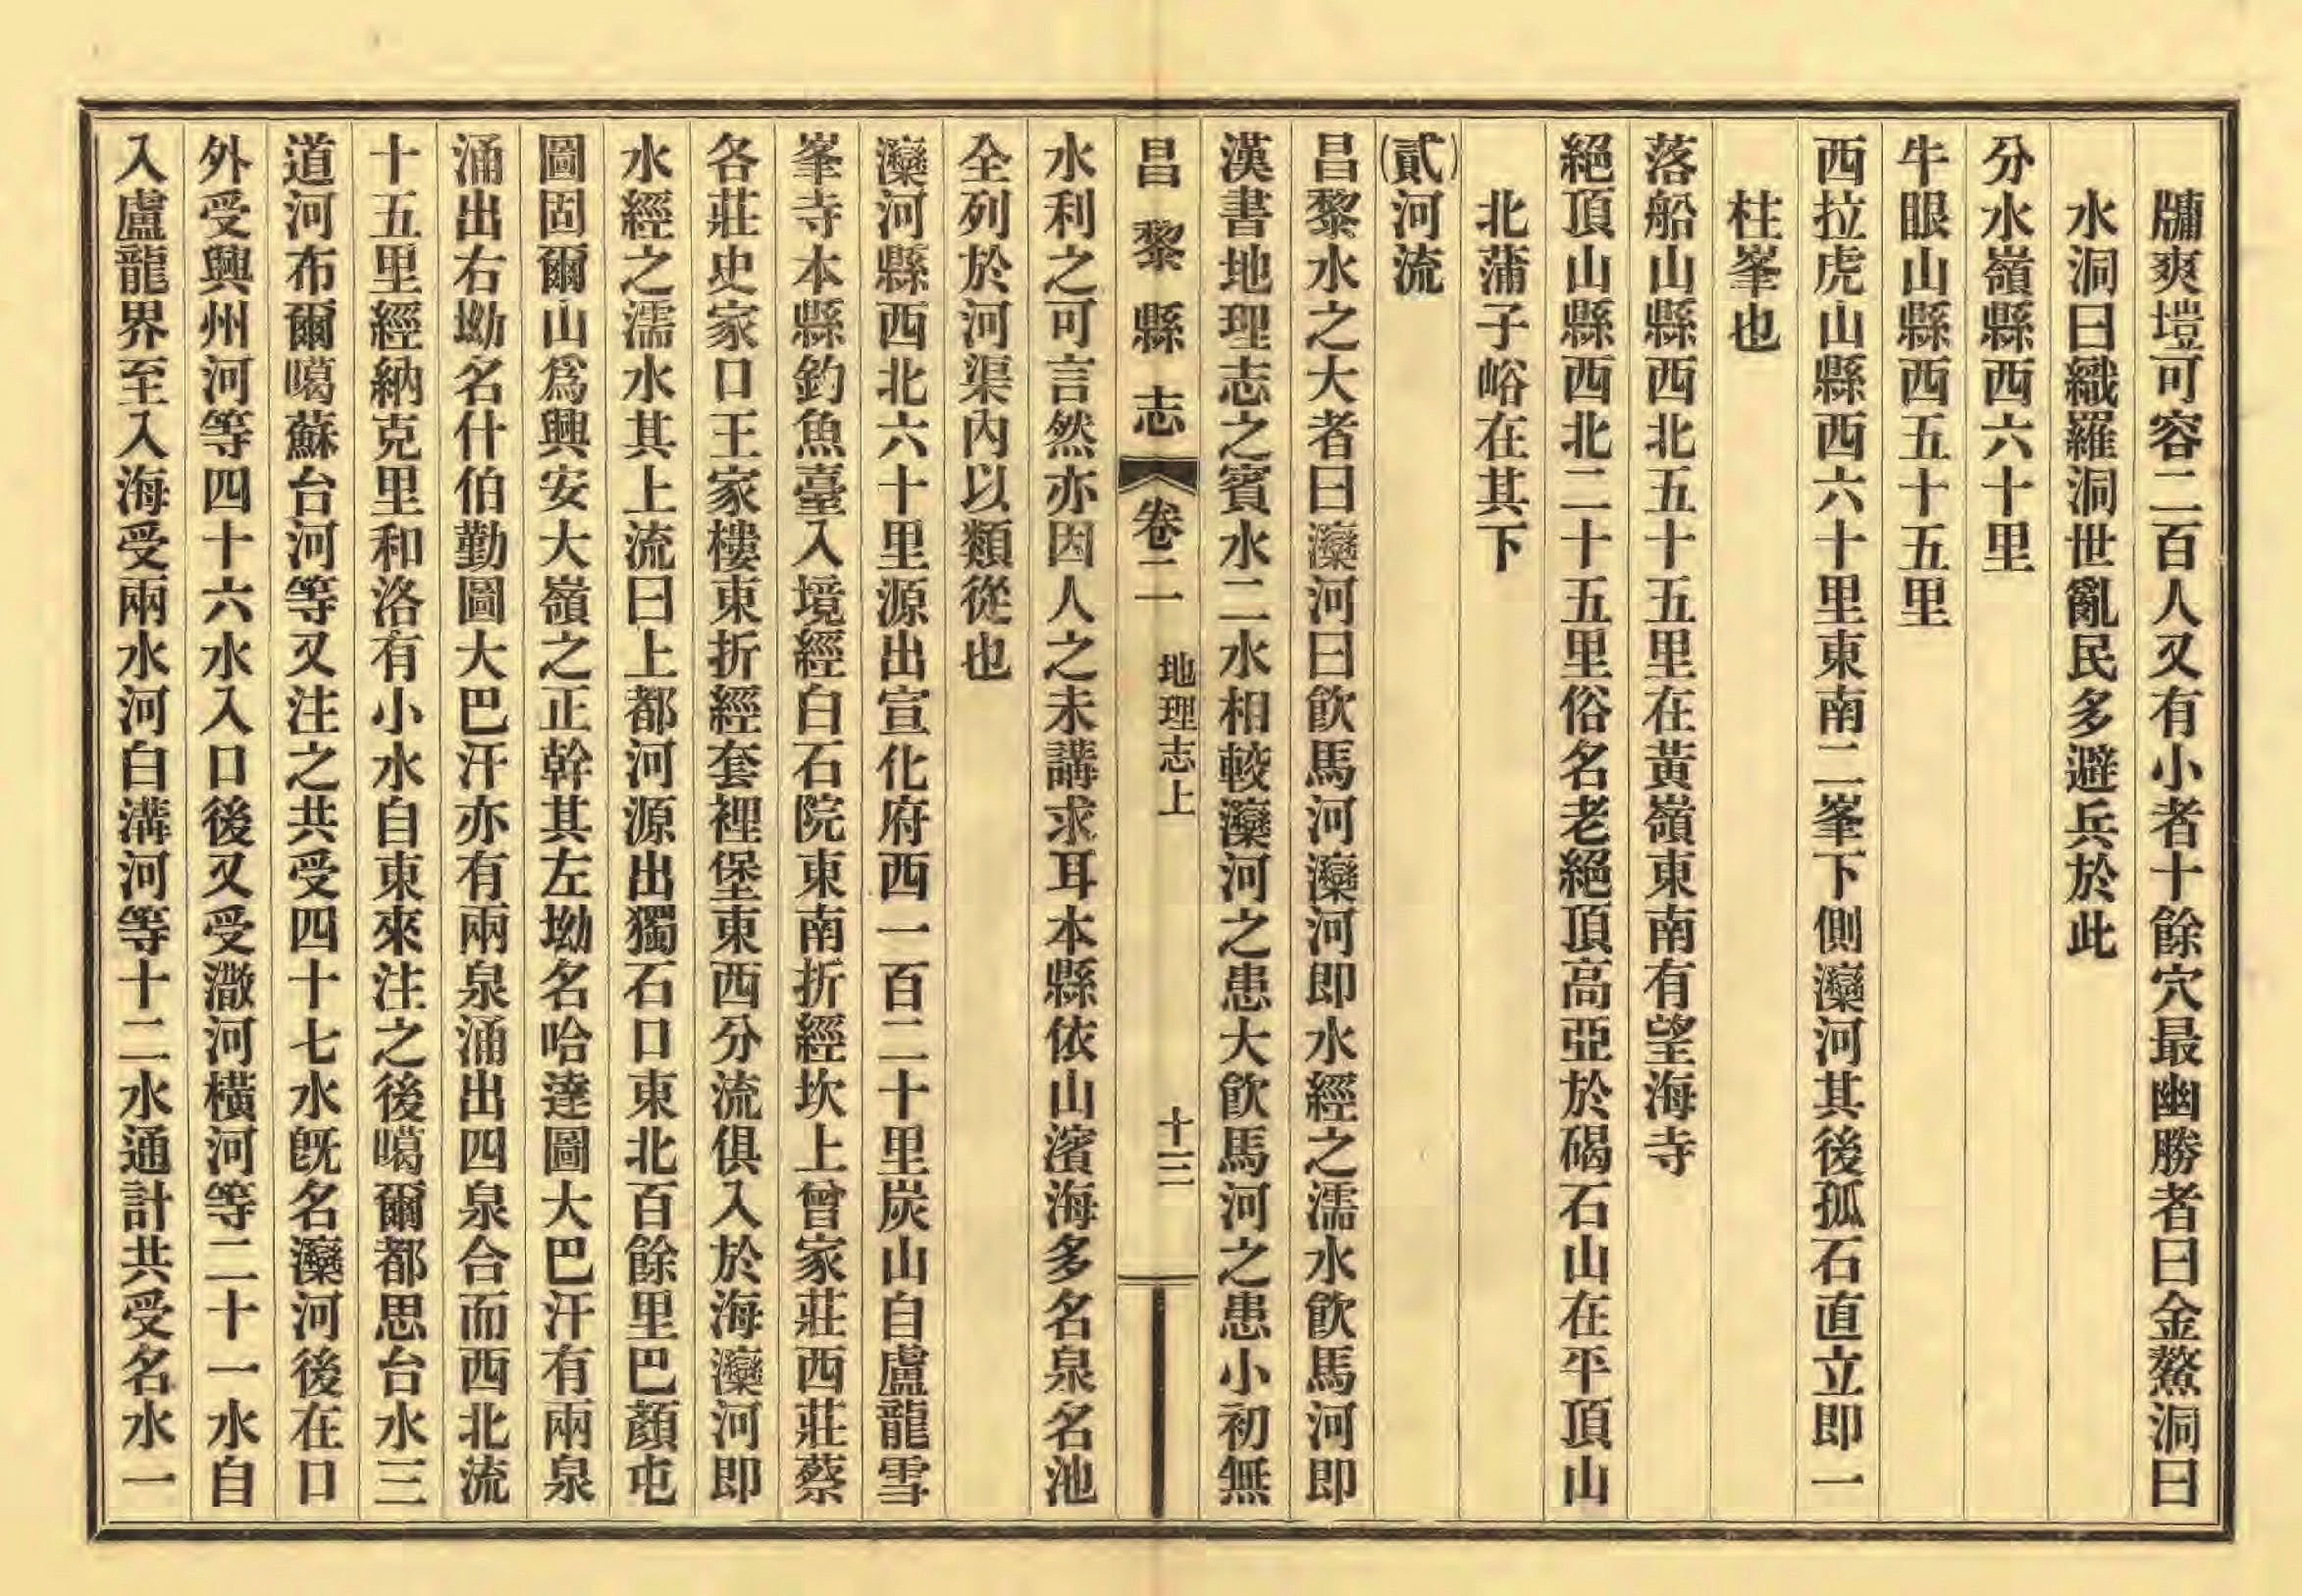 牗爽塏可容二百人又有小者十餘穴最幽勝者曰金鰲洞曰
水洞曰織羅洞世亂民多避兵於此
分水嶺縣西六十里
牛眼山縣西五十五里
西拉虎山縣西六十里東南二峯下側灤河其後孤石直立即一
柱峯也
落船山縣西北五十五里在黃嶺東南有望海寺
絕頂山縣西北二十五里俗名老絕頂高亞於碣石山在平頂山
北蒲子峪在其下
(貳)河流
昌黎水之大者曰灤河曰飮馬河灤河即水經之濡水飮馬河即
漢書地理志之賓水二水相較灤河之患大飮馬河之患小初無
昌黎縣志 卷二 地理志上 十三
水利之可言然亦因人之未講求耳本縣依山濱海多名泉名池
全列於河渠內以類從也
灤河縣西北六十里源出宣化府西一百二十里炭山自盧龍雪
峯寺本縣釣魚臺入境經白石院東南折經坎上曾家莊西莊蔡
各莊史家口王家樓東折經套裡堡東西分流俱入於海灤河即
水經之濡水其上流曰上都河源出獨石口東北百餘里巴顏屯
圖固爾山爲興安大嶺之正幹其左坳名哈達圖大巴汗有兩泉
涌出右坳名什伯勤圖大巴汗亦有兩泉涌出四泉合而西北流
十五里經納克里和洛有小水自東來注之後噶爾都思台水三
道河布爾噶蘇台河等又注之共受四十七水旣名灤河後在口
外受興州河等四十六水入口後又受澈河橫河等二十一水自
入盧龍界至入海受兩水河白溝河等十二水通計共受名水一